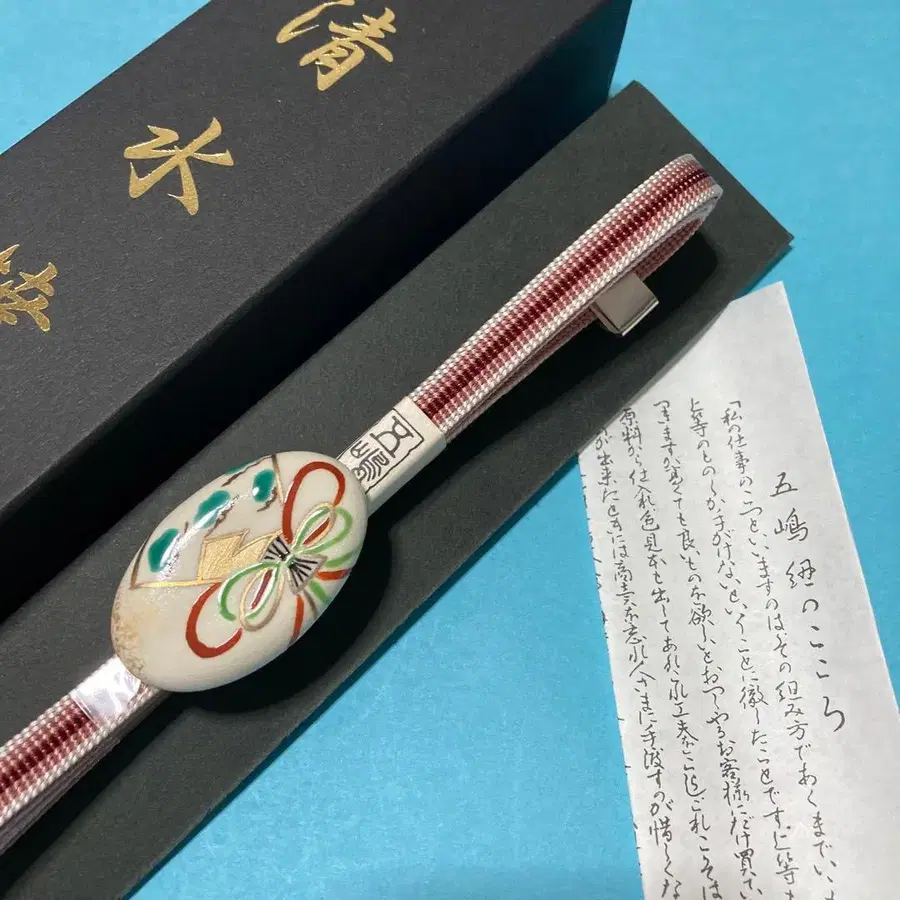 清水焼
五嶋
五嶋紐のこころ
「私の仕事のこつといいますのはその組み方であくまでいい
上等のものしか手がけないということに徹したことです。上等も
つきますが高くても良いものを欲しいとおっしゃるお客様にだけ買てい
原料から仕入れ色見本も出してあれこれ工夫をこらしこれこそは
が出来たときには商売を忘れ人さまに手渡すのが惜しくな